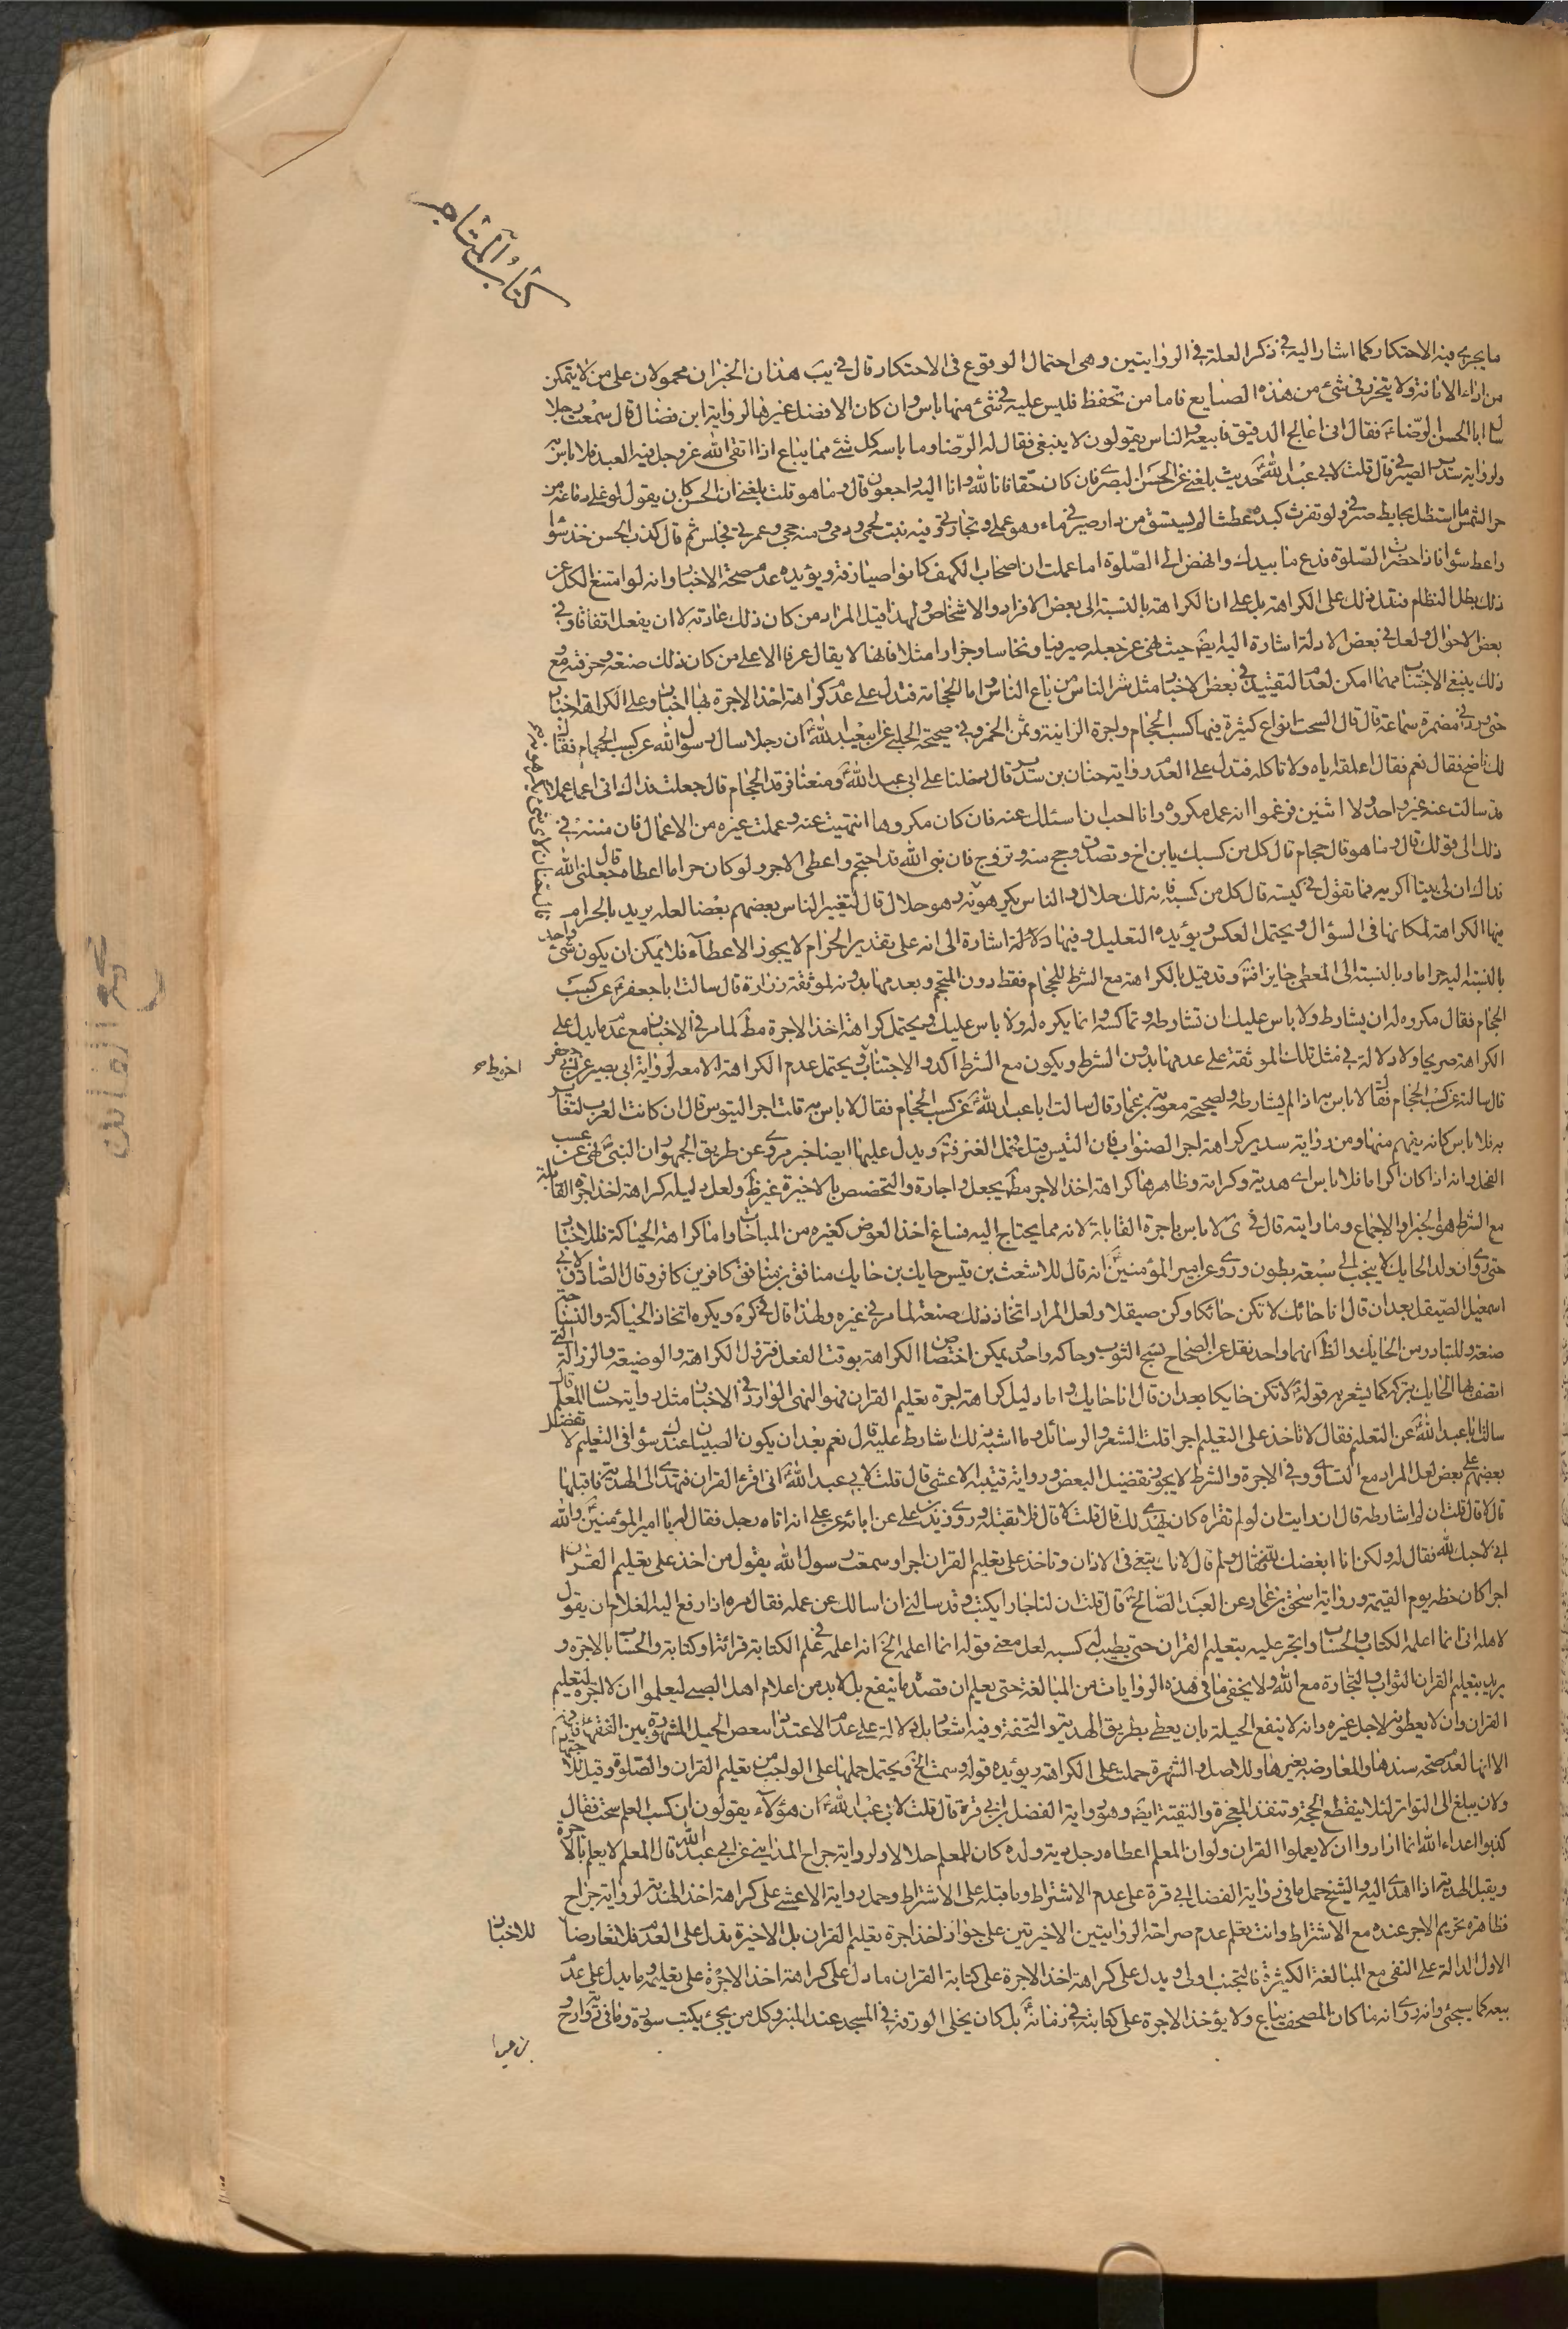 كتاب المتاجر
ما يجرى فيه الاحتكار كما اشار اليه في ذكر العلة في الروايتين وهى احتمال الوقوع فى الاحتكار قال في يب هذان الخبران محمولان على من لا يتمكن
من اداء الامانة ولا يتحرز في شئ من هذه الصنايع فاما من تحفظ فليس عليه في شئ منها باس وان كان الافضل غيرها لرواية ابن فضال قال سمعت رجلا
سال ابا الحسن الرضا ع فقال انى اعالج الدقيق فابيعه والناس يقولون لا ينبغى فقال له الرضا وما باسه كل شئ مما يباع اذا اتقى الله عز وجل فيه العبد فلا باس به
ولرواية سدير الصيرفي قال قلت لابي عبد الله حديث بلغنى عن الحسن البصرى فان كان حقا فانا لله وانا اليه راجعون قال وما هو قلت بلغنى ان الحسن كان يقول لو غلى دماغه من
حر الشمس ما استظل بحايط صيرفي ولو تفرث كبده عطشا لم يستسق من دار صيرفي ماء وهو عملى وتجارتى وفيه نبت لحمى ودمى ومنه حجى وعمرتى فجلس ثم قال كذب الحسن خذ سواء
واعط سواء فاذا حضرت الصلوة فدع ما بيدك وانهض الى الصلوة اما علمت ان اصحاب الكهف كانوا صيارفة ويؤيده عدم صحة الاخبار وانه لو امتنع الكل عن
ذلك بطل النظام فتدل ذلك على الكراهة بل على ان الكراهة بالنسبة الى بعض الافراد والاشخاص ولهذا قيل المراد من كان ذلك عادته لا ان يفعل اتفاقا وفي
بعض الاحوال ولعل في بعض الادلة اشارة اليه ايضا حيث نهى عن جعله صيرفيا ونخاسا وجزارا مثلا فانها لا يقال عرفا الا على من كان ذلك صنعته وحرفته ومع
ذلك ينبغى الاجتناب مهما امكن لعدم التقييد في بعض الاخبار مثل شر الناس من باع الناس واما الحجامة فتدل على عدم كراهة اخذ الاجرة بها اخبار وعلى الكراهة اخبار
حتى ورد في مضمرة سماعة قال قال السحت انواع كثيرة فيها كسب الحجام واجرة الزانية وثمن الخمر وفي صحيحة الحلبي عن ابي عبد الله ان رجلا سال رسول الله عن كسب الحجام فقال
لك ناضح فقال نعم فقال اعلفه اياه ولا تاكله فتدل على العدم رواية حنان بن سدير قال دخلنا على ابى عبد الله ومعنا فرقد الحجام قال جعلت فداك انى اعمل عملا
وقد سالت عنه غير واحد ولا اثنين فزعموا انه عمل مكروه وانا احب ان اسئلك عنه فان كان مكروها انتهيت عنه وعملت غيره من الاعمال فان منته في
ذلك الى قولك قال وما هو قال حجام قال كل من كسبك يا بن اخ وتصدق وحج منه وتزوج فان نبى الله قد احتجم واعطى الاجر ولو كان حراما ما اعطاه قال جعلنى الله
فداك ان لى تيسا اكريه فما تقول في كسبه قال كل من كسبه فانه لك حلال والناس يكرهونه وهو حلال قال لتعيير الناس بعضهم بعضا لعله يريد بالحرام
فيها الكراهة لمكانها فى السؤال ويحتمل العكس ويؤيده التعليل وفيها دلالة اشارة الى انه على تقدير الحرام لا يجوز الاعطآء فلا يمكن ان يكون شئ واحد
بالنسبة اليه حراما وبالنسبة الى المعطى جايزا فتأ وقد قيل بالكراهة مع الشرط للحجام فقط دون المحتجم وبعدمها بدونه لموثقة زرارة قال سالت ابا جعفر عن كسب
الحجام فقال مكروه له ان يشارط ولا باس عليك ان تشارطه وتماكسه وانما يكره له ولا باس عليك ويحتمل كراهة اخذ الاجرة مط لما مر في الاخبار مع عدم ما يدل على
الكراهة صريحا ولا دلالة في مثل تلك الموثقة على عدمها بدون الشرط ويكون مع الشرط اكد والاجتناب ويحتمل عدم الكراهة الا معه لرواية ابى بصير عن ابى جعفر
احوط صح
قال سالته عن كسب الحجام فقال لا باس به اذا لم يشارط ولصحيحة معوية بن عمار قال سالت ابا عبد الله عن كسب الحجام فقال لا باس به قلت اجر التيوس قال ان كانت العرب لتعاير
به فلا باس كانه يفهم منها ومن رواية سدير كراهة اجر الضراب فان التيس قيل فحل المعز فتأ ويدل عليها ايضا خبر مروى عن طريق الجمهور ان النبى نهى عن عسب
الفحل وانه اذا كان اكراما فلا باس اى هدية وكرامة وظاهرها كراهة اخذ الاجر مط بجعل واجارة والتخصيص بالاخيرة غير ظ ولعل دليله كراهة اخذ اجرة القابلة
مع الشرط هو الخبر او الاجماع وما رايته قال في ئ لا باس باجرة القابلة لانه مما يحتاج اليه فساغ اخذ العوض كغيره من المباحات واما كراهة الحياكة فللاخبار
حتى روى ان ولد الحايك لا ينجب الى سبعة بطون وروى عن امير المؤمنين انه قال للاشعث بن قيس حايك بن حايك منافق بن منافق كافر بن كافر وقال الصادق لابي
اسمعيل الصيقل بعد ان قال انا حائك لا تكن حائكا وكن صيقلا ولعل المراد اتخاذ ذلك صنعة لما مر في غيره ولهذا قال في كره ويكره اتخاذ الحياكة والنساجة
صنعة وللتبادر من الحايك والظ انهما واحد نقل عن الصحاح نسج الثوب وحاكه واحد ويمكن اختصاص الكراهة بوقت الفعل فتزول الكراهة والوضيعة والرذالة التى
اتصف بها الحايك بتركه كما يشعر به قوله لا تكن حايكا بعد ان قال انا حايك واما دليل كراهة اجرة تعليم القران فهو النهى الوارد في الاخبار مثل رواية حسان المعلم قال
سالت ابا عبد الله عن التعليم فقال لا تاخذ على التعليم اجرا قلت الشعر والرسائل وما اشبه ذلك اشارط عليه قال نعم بعد ان يكون الصبيان عندك سواء فى التعليم لا تفضل
بعضهم على بعض لعل المراد مع التساوى وفي الاجرة والشرط لا يجوز تفضيل البعض ورواية قتيبة الاعشى قال قلت لابي عبد الله انى اقرء القران فتهدى الى الهدية فاقبلها
قال لا قال قلت ان لم اشارطه قال ان رايت ان لو لم تقراه كان يهدى لك قال قلت لا قال فلا تقبله وروى زيد بن على عن ابائه عن على انه اتاه رجل فقال له يا امير المؤمنين والله
انى لاحبك لله فقال له ولكن انا ابغضك لله فقال ولم قال لانك تبتغى فى الاذان وتاخذ على تعليم القران اجرا وسمعت رسول الله يقول من اخذ على تعليم القران
اجرا كان حظه يوم القيمة ورواية اسحق بن عمار عن العبد الصالح قال قلت ان لنا جارا يكتب وقد سالنى ان اسالك عن عمله فقال مره اذا رفع اليه الغلام ان يقول
لاهله انى انما اعلمه الكتاب والحساب واتجر عليه بتعليم القران حتى يطيب له كسبه لعل معنى قوله انما اعلمه الخ انه اعلمه فى علم الكتابة قرائة وكتابة والحساب بالاجرة و
يريد بتعليم القران الثواب والتجارة مع الله ولا يخفى ما فى هذه الروايات من المبالغة حتى يعلم ان قصده ما ينفع بل لا بد من اعلام اهل الصبى ليعلموا ان لا اجرة لتعليم
القران وان لا يعطونه لاجل غيره وانه لا ينفع الحيلة بان يعطى بطريق الهدية والتحفة وفيه اشعار بل دلالة على عدم الاعتداد ببعض الحيل المشهورة بين الفقهاء فتأ
الا انها لعدم صحة سندها والمعارضة بغيرها وللاصل والشهرة حملت على الكراهة ويؤيده قوله وسمعت الخ ويحتمل حملها على الواجب من تعليم القران والصلوة وقيل لئلا
ولان يبلغ الى التواتر لئلا ينقطع الحجة وتنفذ المعجزة والتقية ايضا وهى رواية الفضل بن ابى قرة قال قلت لابى عبد الله ان هؤلآء يقولون ان كسب المعلم سحت فقال
كذبوا اعداء الله انما ارادوا ان لا يعلموا القران ولو ان المعلم اعطاه رجل دية ولده كان للمعلم حلالا ولرواية جراح المداينى عن ابى عبد الله قال المعلم لا يعلم بالاجرة
ويقبل الهدية اذا اهدى اليه والشيخ حمل ما في رواية الفضل بن ابى قرة على عدم الاشتراط وما قبله على الاشتراط وحمل رواية الاعشى على كراهة اخذ الهدية لرواية جراح
فظاهره تحريم الاجر عنده مع الاشتراط وانت تعلم عدم صراحة الروايتين الاخيرتين على جواز اخذ اجرة تعليم القران بل الاخيرة تدل على العدم فلا تعارضا
للاخبار
الاول الدالة على النفى مع المبالغة الكثيرة فالتجنب اولى ويدل على كراهة اخذ الاجرة على كتابة القران ما دل على كراهة اخذ الاجرة على تعليمه وما يدل على عدم
بيعه كما سيجئ وانه روى انه ما كان المصحف يباع ولا يؤخذ الاجرة على كتابته في زمانه بل كان يخلى الورقة فى المسجد عند المنبر وكل من يجئ يكتب سورة وما فى رواية روح
بن عبد ا
مجمع الفائدة